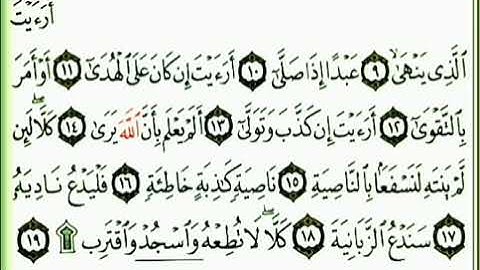 أَرَءَيْتَ
ٱلَّذِى يَنْهَىٰ ٩ عَبْدًا إِذَا صَلَّىٰٓ ١٠ أَرَءَيْتَ إِن كَانَ عَلَى ٱلْهُدَىٰٓ ١١ أَوْ أَمَرَ
بِٱلتَّقْوَىٰٓ ١٢ أَرَءَيْتَ إِن كَذَّبَ وَتَوَلَّىٰٓ ١٣ أَلَمْ يَعْلَم بِأَنَّ ٱللَّهَ يَرَىٰ ١٤ كَلَّا لَئِن
لَّمْ يَنتَهِ لَنَسْفَعًۢا بِٱلنَّاصِيَةِ ١٥ نَاصِيَةٍ كَٰذِبَةٍ خَاطِئَةٍ ١٦ فَلْيَدْعُ نَادِيَهُۥ
١٧ سَنَدْعُ ٱلزَّبَانِيَةَ ١٨ كَلَّا لَا تُطِعْهُ وَٱسْجُدْ وَٱقْتَرِب ۩ ١٩